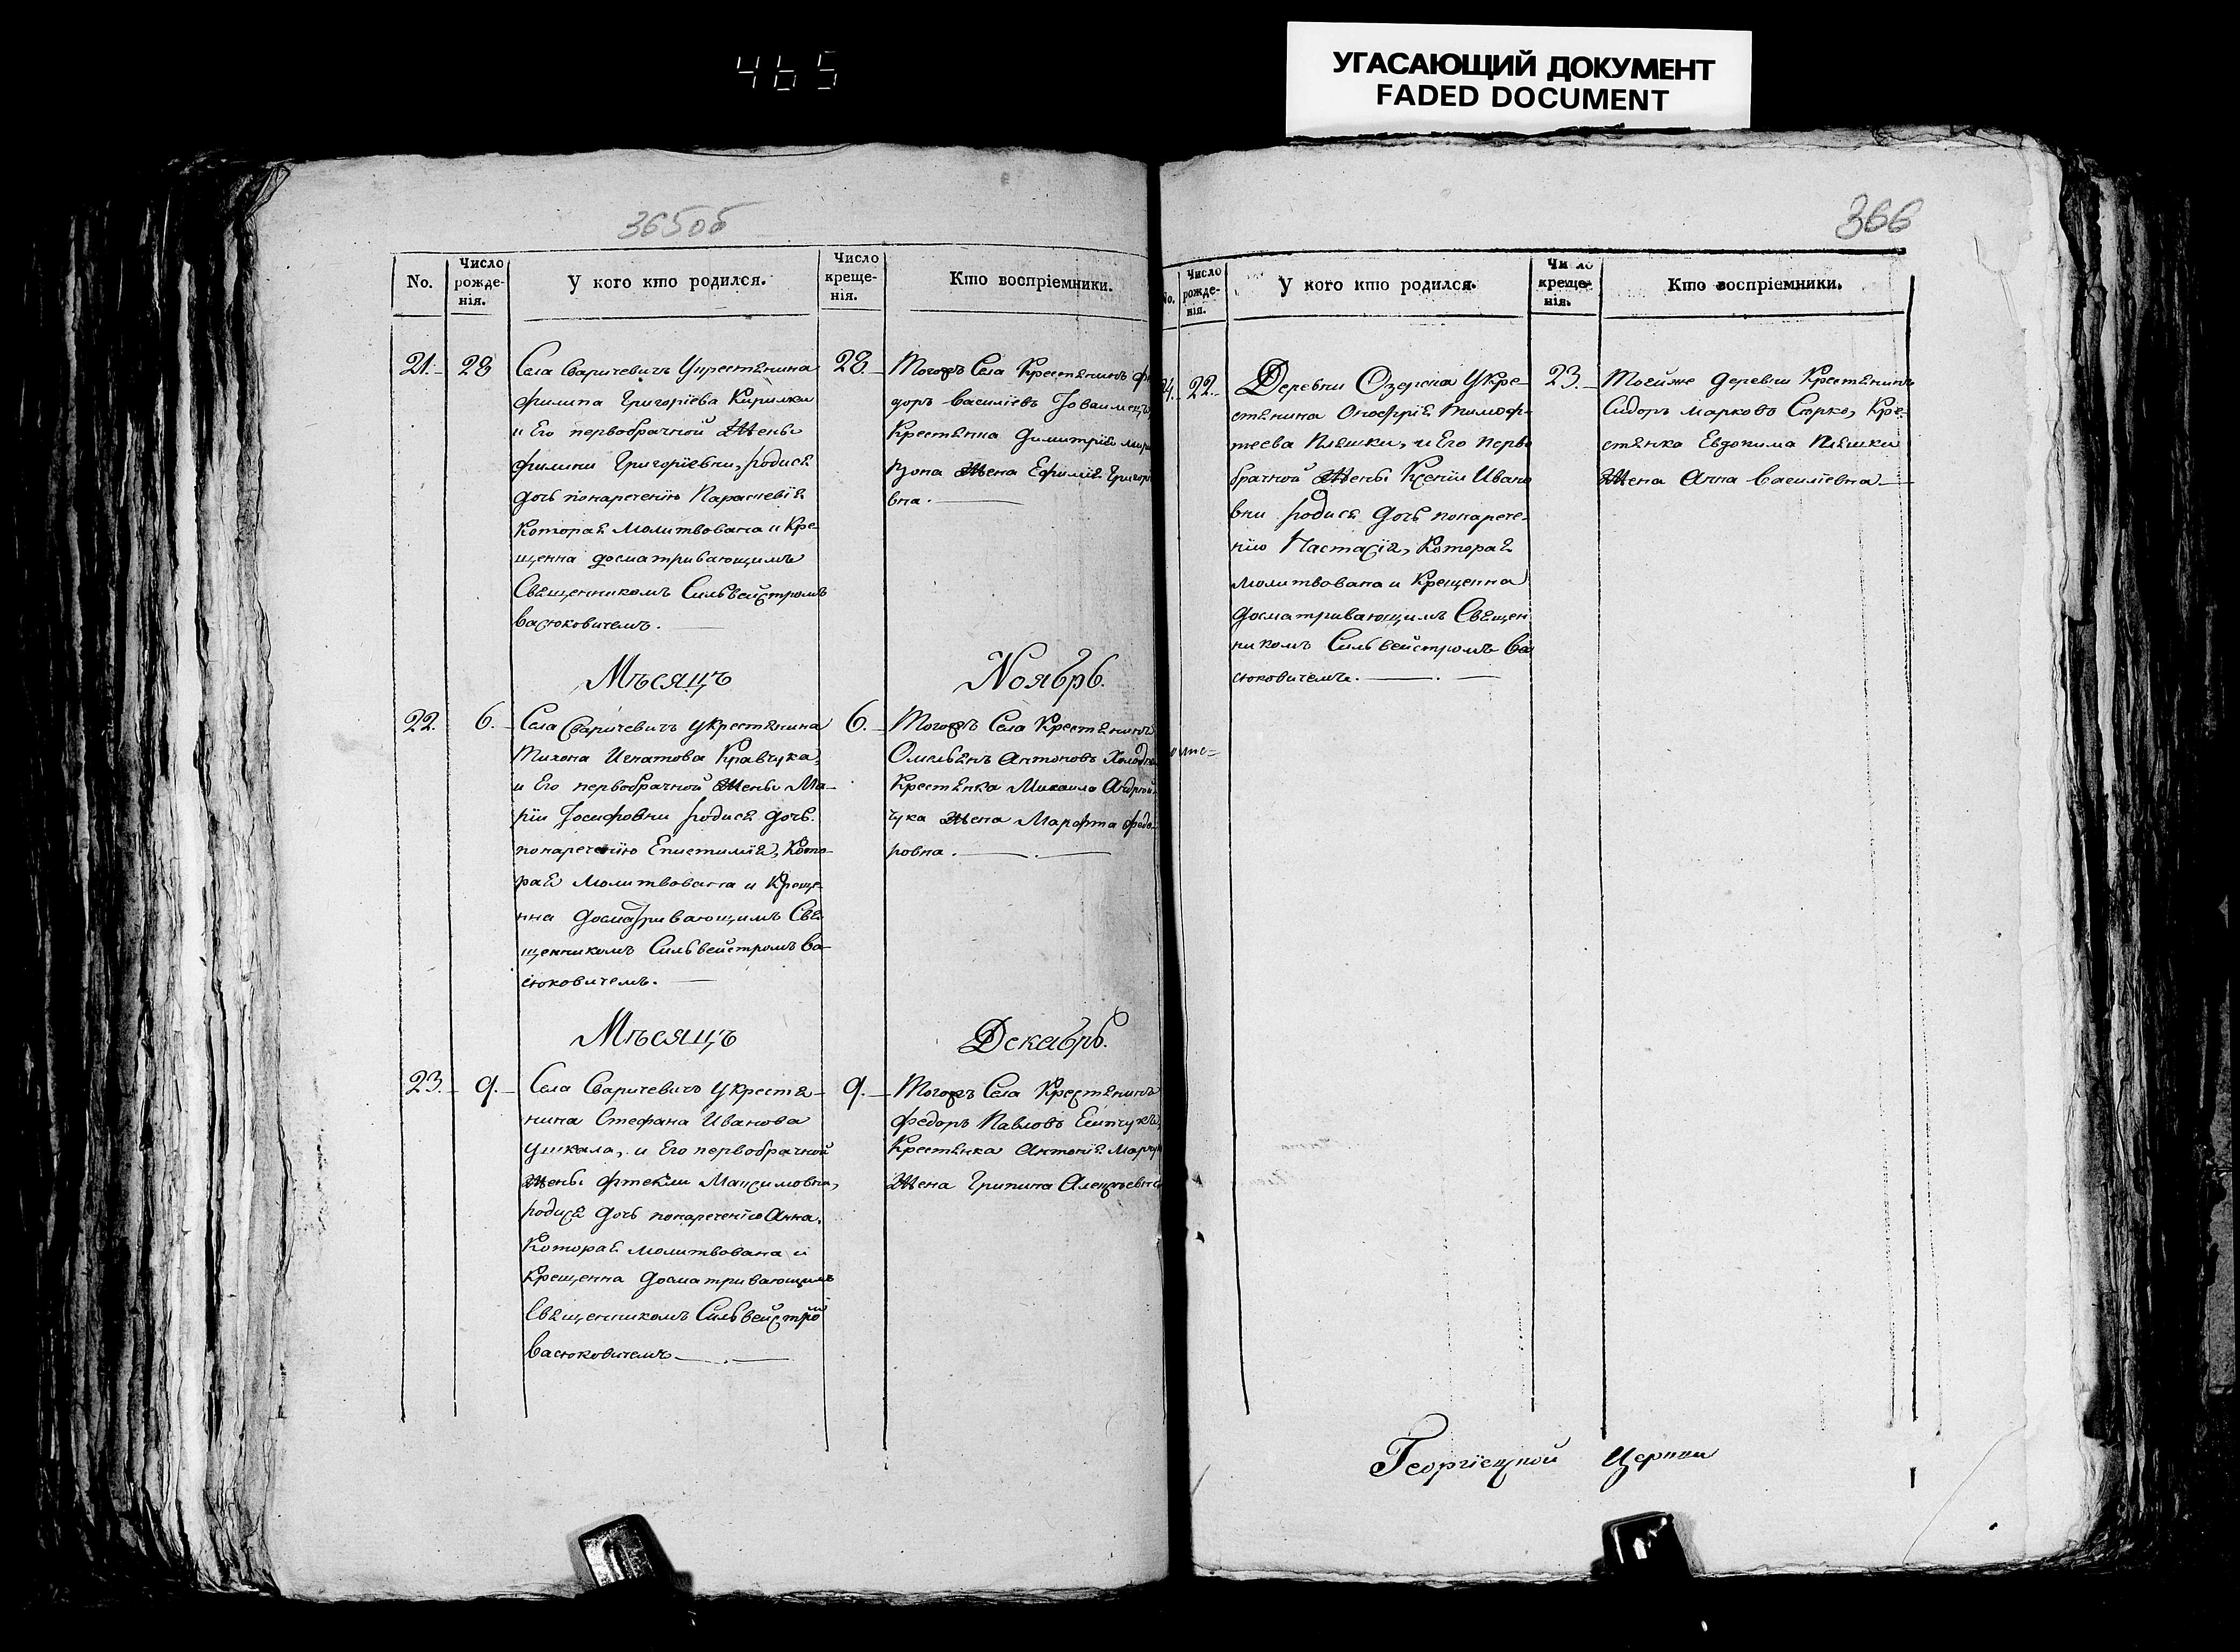 465
УГАСАЮЩИЙ ДОКУМЕНТ
FADED DOCUMENT
365об
No.
Число рожде-нія.
У кого кто родился.
Число креще-нія.
Кто воспріемники.
21. 28
Села Сваричевичъ Укрестянина
Филипа Григоріева Кирилки
и Его первобрачной Жены
Филипи Григоріевни, родися
дочь понареченію Параскевія
Которая Молитвована и Кре-
щенна досматривающимъ
Священникомъ Сильвейстромъ
Васюковичемъ.
28.
Тогожъ Села Крестянинъ
доръ Василіевъ
Крестянка Димитрія
Жена Ефимія Григорі
вна.
Мѣсяцъ Ноябрь.
22. 6.
Села Сваричевичъ Укрестянина
Тихона Игнатова Кравчука,
и Его первобрачной Жены Ма-
ріи Іосифовни родися дочь
понареченію Епистимія, Кото-
рая Молитвована и Креще-
нна досматривающимъ Свя
щенникомъ Сильвейстромъ Ва-
сюковичемъ.
6.
Тогожъ Села Крестянинъ
Омельянъ Антоновъ
Крестянка Михаила Андрей
чука Жена Марфта Федо
ровна.
Мѣсяцъ Декабрь.
23. 9.
Села Сваричевичъ Укрестя-
нина Стефана Иванова
Ушкала, и Его первобрачной
Жены Фтекли Максимовни,
родися дочь понареченію Анна,
Которая Молитвована и
Крещенна Досматривающимъ
Священникомъ Сильвейстро
Васюковичемъ
9.
Тогожъ Села Крестянинъ
Федоръ Павловъ
Крестянка Антонія
Жена Грипина Алексѣевна
366
No.
Число рожде-нія.
У кого кто родился.
Число креще-нія.
Кто воспріемники.
4. 22.
Деревни Озерска Укре-
стянина Онофрія Тимоф-
теева Пляшки, и Его перво
брачной Жены Ксеніи Ивано
вни родися дочь понарече-
нію Настасія, Которая
молитвована и Крещенна
досматривающимъ Священ
никомъ Сильвейстромъ Ва
сюковичемъ.
23.
Тойже деревни Крестянинъ
Сидоръ Марковъ Сырко, Кре-
стянка Евдокима Пляшки
Жена Анна Василіевна
Георгіевской Церкви